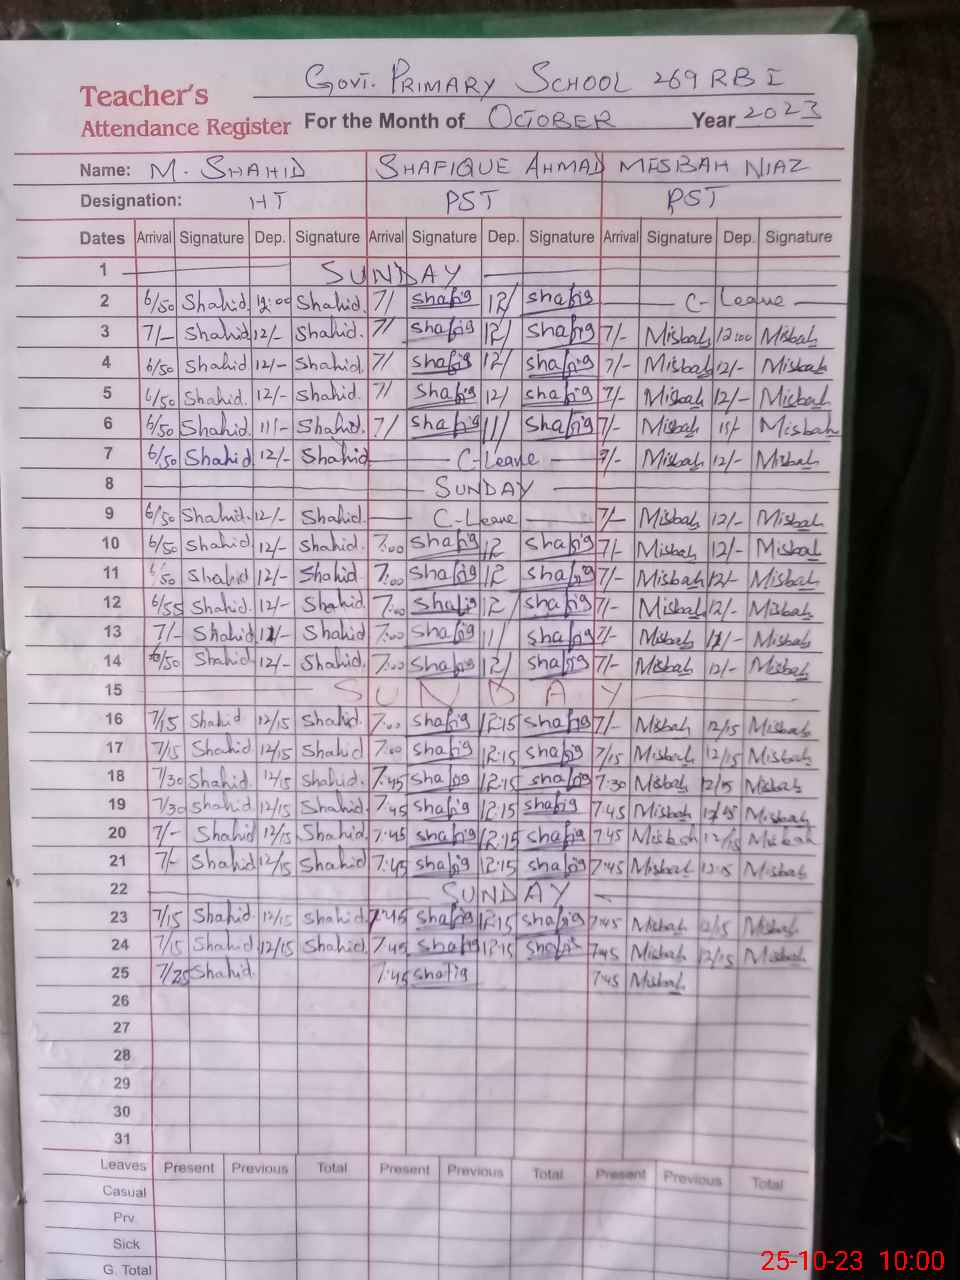 GOVT. PRIMARY SCHOOL 269 RB I
Teacher's
Attendance Register For the Month of OCTOBER Year 2023
Name: M. SHAHID SHAFIQUE AHMAD MESBAH NIAZ
Designation: HT PST PST
Dates Arrival Signature Dep. Signature Arrival Signature Dep. Signature Arrival Signature Dep. Signature
1 SUNDAY
2 6/50 Shahid 12:00 Shahid. 7/ Shafiq 12/ Shafiq C-Leave
3 7/- Shahid 12/- Shahid. 7/ Shafiq 12/ Shafiq 7/- Misbah 12:00 Misbah
4 6/50 Shahid 12/- Shahid. 7/ Shafiq 12/ Shafiq 7/- Misbah 12/- Misbah
5 6/50 Shahid. 12/- Shahid. 7/ Shafiq 12/ Shafiq 7/- Misbah 12/- Misbah
6 6/50 Shahid. 11/- Shahid. 7/ Shafiq 11/ Shafiq 7/- Misbah 11/- Misbah
7 6/50 Shahid. 12/- Shahid C-Leave 7/- Misbah 12/- Misbah
8 SUNDAY
9 6/50 Shahid. 12/- Shahid. C-Leave 7/- Misbah 12/- Misbah
10 6/50 Shahid. 12/- Shahid. 7:00 Shafiq 12 Shafiq 7/- Misbah 12/- Misbah
11 6/50 Shahid 12/- Shahid. 7:00 Shafiq 12 Shafiq 7/- Misbah 12/- Misbah
12 6/55 Shahid. 12/- Shahid. 7:00 Shafiq 12/ Shafiq 7/- Misbah 12/- Misbah
13 7/- Shahid 11/- Shahid. 7:00 Shafiq 11/ Shafiq 7/- Misbah 11/- Misbah
14 6/50 Shahid 12/- Shahid. 7:00 Shafiq 12/ Shafiq 7/- Misbah 12/- Misbah
15 SUNDAY
16 7/15 Shahid 12/15 Shahid. 7:00 Shafiq 12:15 Shafiq 7/- Misbah 12/15 Misbah
17 7/15 Shahid 12/15 Shahid 7:00 Shafiq 12:15 Shafiq 7/15 Misbah 12/15 Misbah
18 7/30 Shahid 12/15 Shahid. 7:45 Shafiq 12:15 Shafiq 7:30 Misbah 12/15 Misbah
19 7/30 Shahid 12/15 Shahid. 7:45 Shafiq 12:15 Shafiq 7:45 Misbah 12/15 Misbah
20 7/- Shahid 12/15 Shahid. 7:45 Shafiq 12:15 Shafiq 7:45 Misbah 12/15 Misbah
21 7/- Shahid 12/15 Shahid 7:45 Shafiq 12:15 Shafiq 7:45 Misbah 12:15 Misbah
22 SUNDAY
23 7/15 Shahid 12/15 Shahid 7:45 Shafiq 12:15 Shafiq 7:45 Misbah 12/15 Misbah
24 7/15 Shahid 12/15 Shahid. 7:45 Shafiq 12:15 Shafiq 7:45 Misbah 12/15 Misbah
25 7/25 Shahid 7:45 Shafiq 7:45 Misbah
26
27
28
29
30
31
Leaves Present Previous Total Present Previous Total Present Previous Total
Casual
Prv
Sick
G. Total
25-10-23 10:00